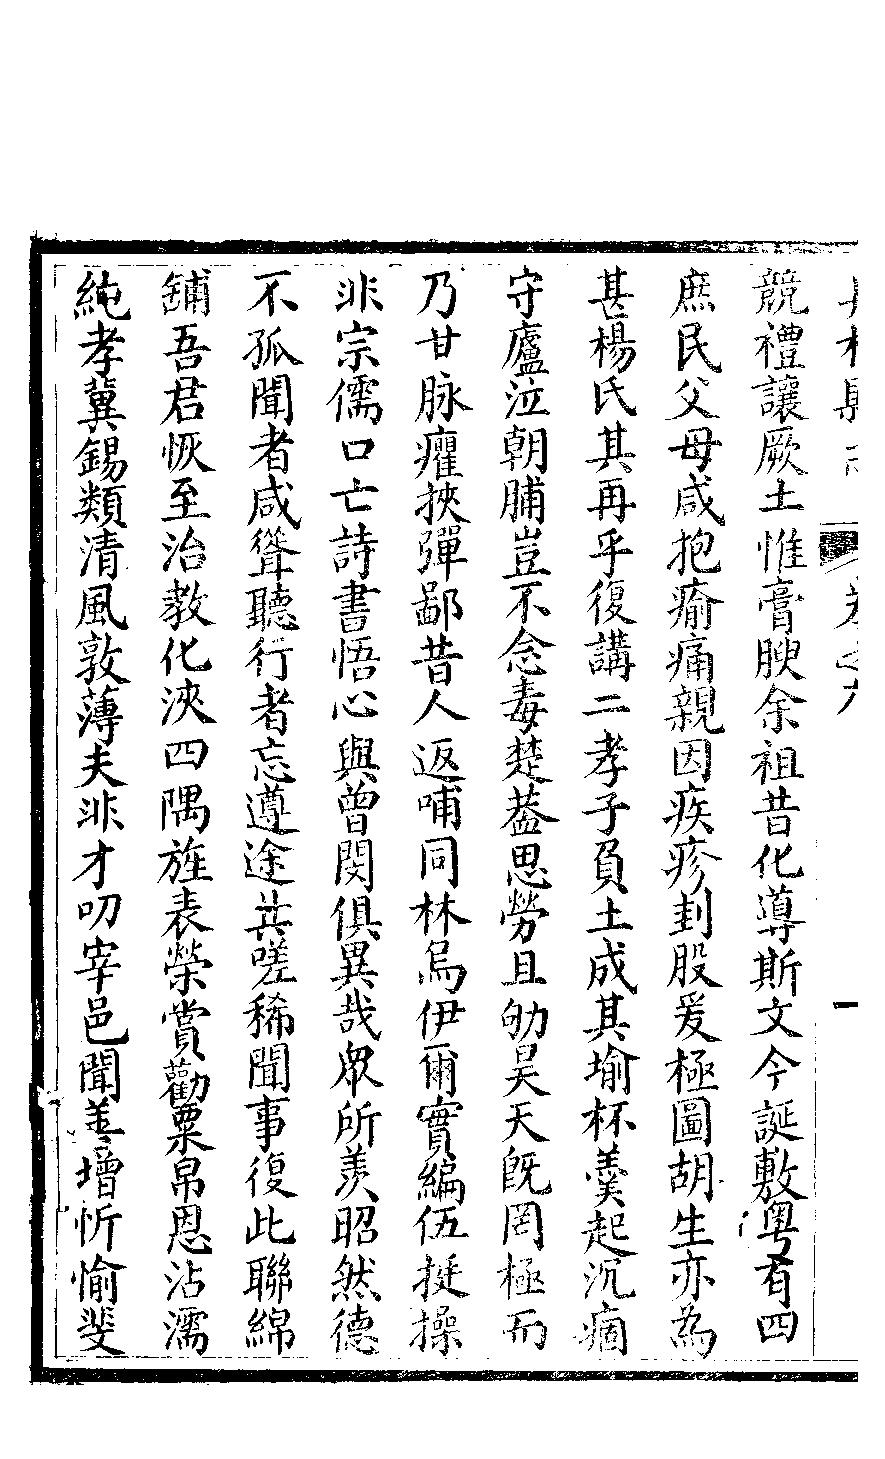 卷之九
競禮讓厥土惟膏腴余祖昔化導斯文今誕敷粵有四
庶民父母咸抱瘉痛親因疾疹刲股爰極圖胡生亦為
甚楊氏其再乎復講二孝子負土成其堬杯羹起沉痼
守廬泣朝脯豈不念毒楚葢思勞且劬昊天旣罔極而
乃甘脉癯挾彈鄙昔人返哺同林烏伊爾實編伍挺操
非宗儒口亡詩書悟心與曾閔俱異哉眾所羨昭然德
不孤聞者咸聳聽行者忘遵途共嗟稀聞事復此聯綿
鋪吾君恢至治教化浹四隅旌表榮賞勸粟帛恩沾濡
純孝冀錫類清風敦薄夫非才叨宰邑聞善增忻愉斐